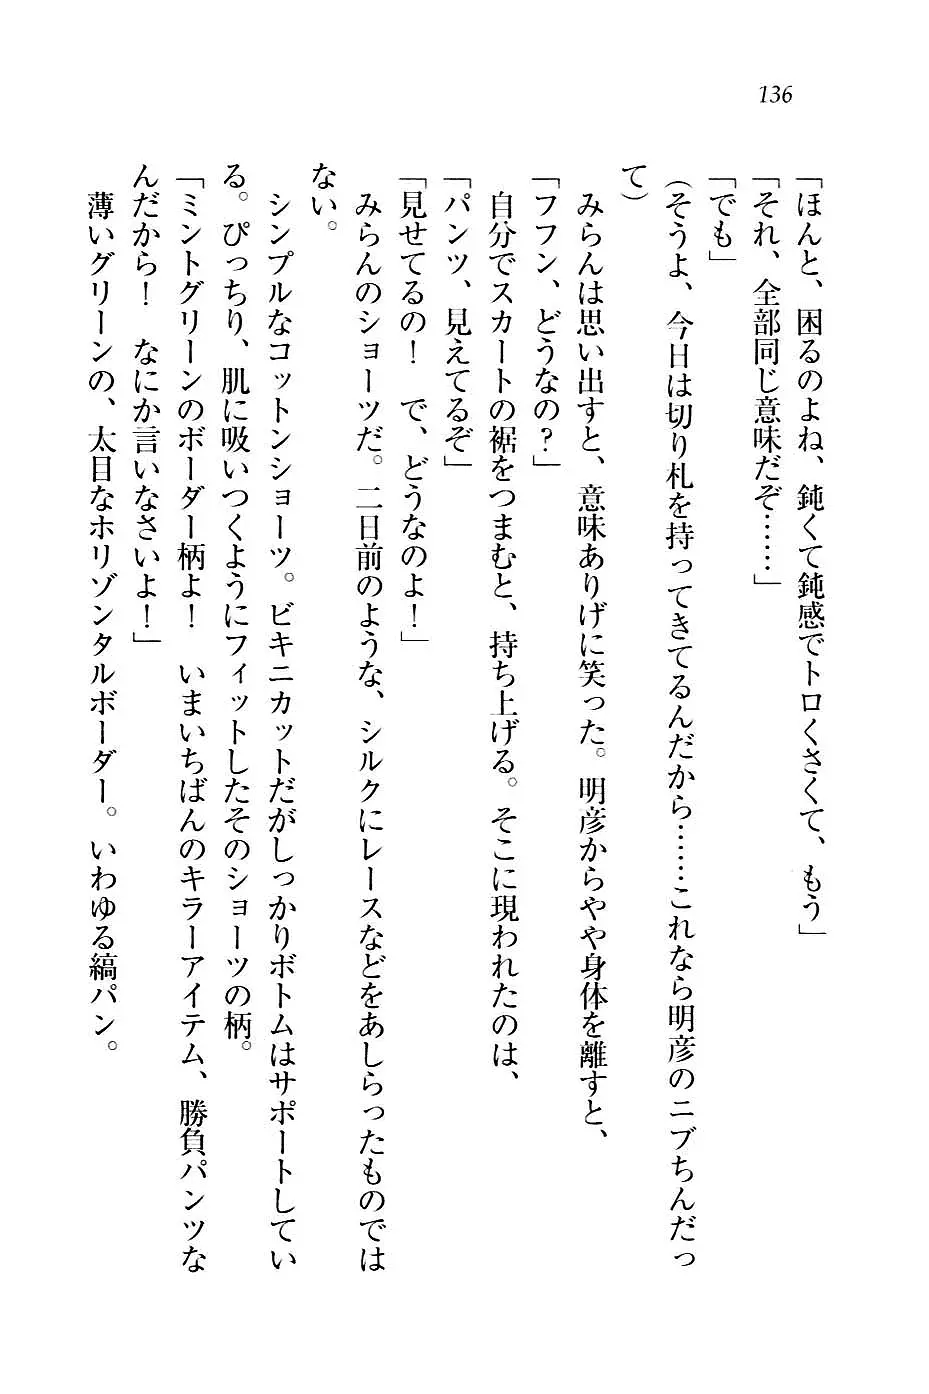 136
「ほんと、困るのよね、鈍くて鈍感でトロくさくて、もう」
「それ、全部同じ意味だぞ……」
「でも」
（そうよ、今日は切り札を持ってきてるんだから……これなら明彦のニブちんだっ
て）
みらんは思い出すと、意味ありげに笑った。明彦からやや身体を離すと、
「フフン、どうなの？」
自分でスカートの裾をつまむと、持ち上げる。そこに現われたのは、
「パンツ、見えてるぞ」
「見せてるの！　で、どうなのよ！」
みらんのショーツだ。二日前のような、シルクにレースなどをあしらったものでは
ない。
シンプルなコットンショーツ。ビキニカットだがしっかりボトムはサポートしてい
る。ぴっちり、肌に吸いつくようにフィットしたそのショーツの柄。
「ミントグリーンのボーダー柄よ！　いまいちばんのキラーアイテム、勝負パンツな
んだから！　なにか言いなさいよ！」
薄いグリーンの、太目なホリゾンタルボーダー。いわゆる縞パン。